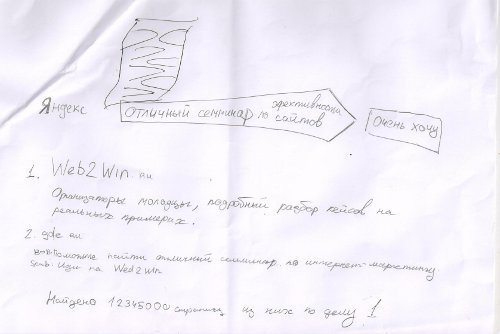 Яндекс
отличный семинар по эфективности сайтов
Очень хочу
1. Web2Win.ru
Организаторы молодцы, подробный разбор кейсов на
реальных примерах.
2. gde.ru
Поможите найти отличный семминар по интернет маркетингу
Иди на Web2Win
Найдено 12345000 страниц, из них по делу 1